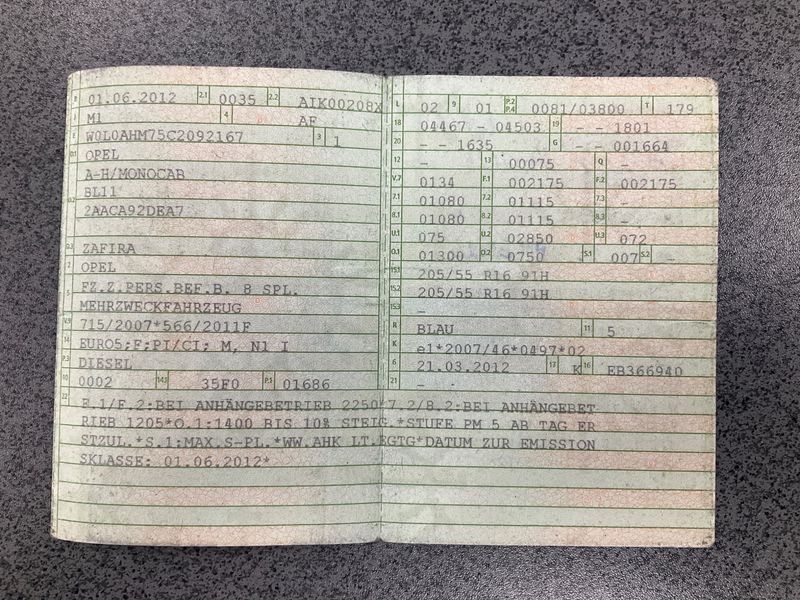 B 01.06.2012 2.1 0035 2.2 AIK00208X
J M1 4 AF
E W0L0AHM75C2092167 3 1
D.1 OPEL
A-H/MONOCAB
D.2 BL11
2AACA92DEA7
D.3 ZAFIRA
2 OPEL
5 FZ.Z.PERS.BEF.B. 8 SPL.
MEHRZWECKFAHRZEUG
V.9 715/2007*566/2011F
14 EURO5;F;PI/CI; M, N1 I
P.3 DIESEL
10 0002 14.1 35F0 P.1 01686
22 F.1/F.2:BEI ANHÄNGEBETRIEB 2250*7.2/8.2:BEI ANHÄNGEBET
RIEB 1205*O.1:1400 BIS 10% STEIG.*STUFE PM 5 AB TAG ER
STZUL.*S.1:MAX.S-PL.*WW.AHK LT.EGTG*DATUM ZUR EMISSION
SKLASSE: 01.06.2012*
L 02 9 01 P.2 P.4 0081/03800 T 179
18 04467 - 04503 19 - - 1801
20 - - 1635 G - - 001664
12 - 13 00075 Q -
V.7 0134 F.1 002175 F.2 002175
7.1 01080 7.2 01115 7.3 -
8.1 01080 8.2 01115 8.3 -
U.1 075 U.2 02850 U.3 072
O.1 01300 O.2 0750 S.1 007 S.2 -
15.1 205/55 R16 91H
15.2 205/55 R16 91H
15.3 -
R BLAU 11 5
K e1*2007/46*0497*02
6 21.03.2012 17 K 16 EB366940
21 -